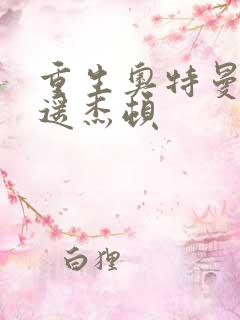 重生奥特曼
遥杰顿
白狸